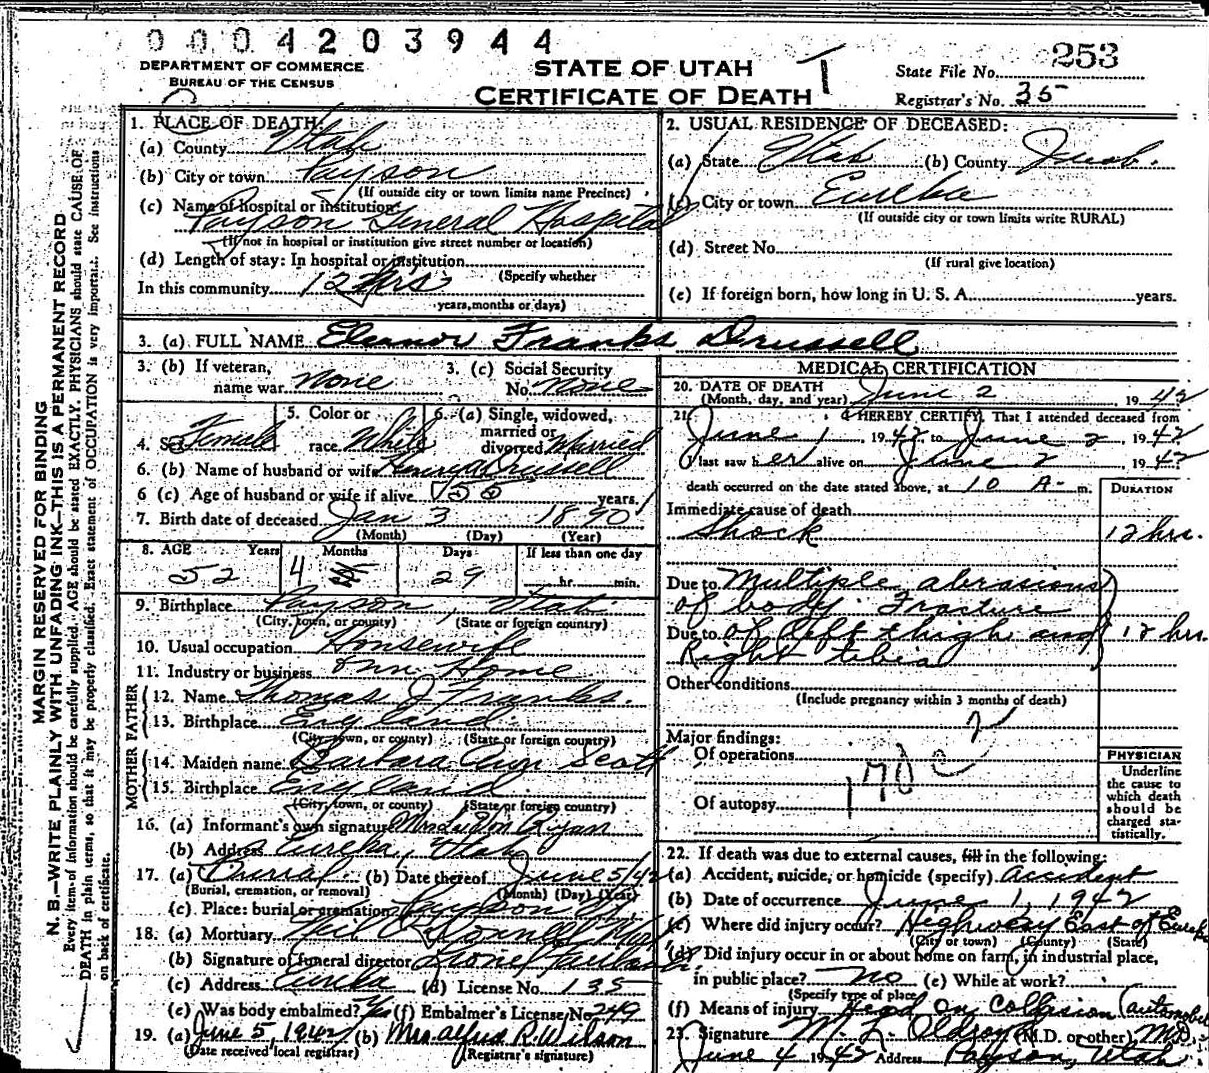 0 0 0 4 2 0 3 9 4 4
DEPARTMENT OF COMMERCE
BUREAU OF THE CENSUS
STATE OF UTAH
CERTIFICATE OF DEATH
State File No. 253
Registrar's No. 35
MARGIN RESERVED FOR BINDING
N. B.—WRITE PLAINLY WITH UNFADING INK—THIS IS A PERMANENT RECORD
Every item of information should be carefully supplied. AGE should be stated EXACTLY. PHYSICIANS should state CAUSE OF
DEATH in plain terms, so that it may be properly classified. Exact statement of OCCUPATION is very important. See instructions
on back of certificate.
1. PLACE OF DEATH:
(a) County Utah
(b) City or town Payson
(If outside city or town limits name Precinct)
(c) Name of hospital or institution:
Payson General Hospital
(If not in hospital or institution give street number or location)
(d) Length of stay: In hospital or institution
(Specify whether
In this community 12 Hrs
years, months or days)
2. USUAL RESIDENCE OF DECEASED:
(a) State Utah (b) County Juab.
(c) City or town Eureka
(If outside city or town limits write RURAL)
(d) Street No.
(If rural give location)
(e) If foreign born, how long in U. S. A. years.
3. (a) FULL NAME Eleanor Franks Drussell
3. (b) If veteran, name war None
3. (c) Social Security No. None
4. Sex Female
5. Color or race White
6. (a) Single, widowed, married or divorced Married
6. (b) Name of husband or wife Henry Drussell
6 (c) Age of husband or wife if alive 55 years.
7. Birth date of deceased Jan 3 1890
(Month) (Day) (Year)
8. AGE Years Months Days If less than one day
52 4 29 hr. min.
9. Birthplace Payson, Utah
(City, town, or county) (State or foreign country)
10. Usual occupation Housewife
11. Industry or business Own Home
FATHER
12. Name Thomas J Franks.
13. Birthplace England
(City, town, or county) (State or foreign country)
MOTHER
14. Maiden name Barbara Ann Scott
15. Birthplace England
(City, town, or county) (State or foreign country)
16. (a) Informant's own signature Mrs Ryan
(b) Address Eureka, Utah
17. (a) Burial (b) Date thereof June 5/42
(Burial, cremation, or removal) (Month) (Day) (Year)
(c) Place: burial or cremation Payson
18. (a) Mortuary Neil O'Donnell
(b) Signature of funeral director
(c) Address Eureka (d) License No. 135
(e) Was body embalmed? Yes (f) Embalmer's License No. 249
19. (a) June 5, 1942 (b) Mrs. Alfred R. Wilson
(Date received local registrar) (Registrar's signature)
MEDICAL CERTIFICATION
20. DATE OF DEATH
(Month, day, and year) June 2 1942
21. I HEREBY CERTIFY, That I attended deceased from
June 1, 1942 to June 2, 1942
I last saw her alive on June 2 1942
death occurred on the date stated above, at 10 A. m.
DURATION
Immediate cause of death
Shock 12 hrs.
Due to Multiple abrasions
of body. Fracture
Due to of left thigh and 12 hrs.
Right tibia
Other conditions
(Include pregnancy within 3 months of death)
Major findings:
Of operations
170 c
Of autopsy
PHYSICIAN
Underline
the cause to
which death
should be
charged sta-
tistically.
22. If death was due to external causes, fill in the following:
(a) Accident, suicide, or homicide (specify) Accident
(b) Date of occurrence June 1, 1942
(c) Where did injury occur? Highway East of Eureka
(City or town) (County) (State)
(d) Did injury occur in or about home on farm, in industrial place,
in public place? No (e) While at work?
(Specify type of place)
(f) Means of injury Head on Collision (automobile
23. Signature M. L. Oldroyd (M.D. or other) M.D.
June 4 1942 Address Payson, Utah